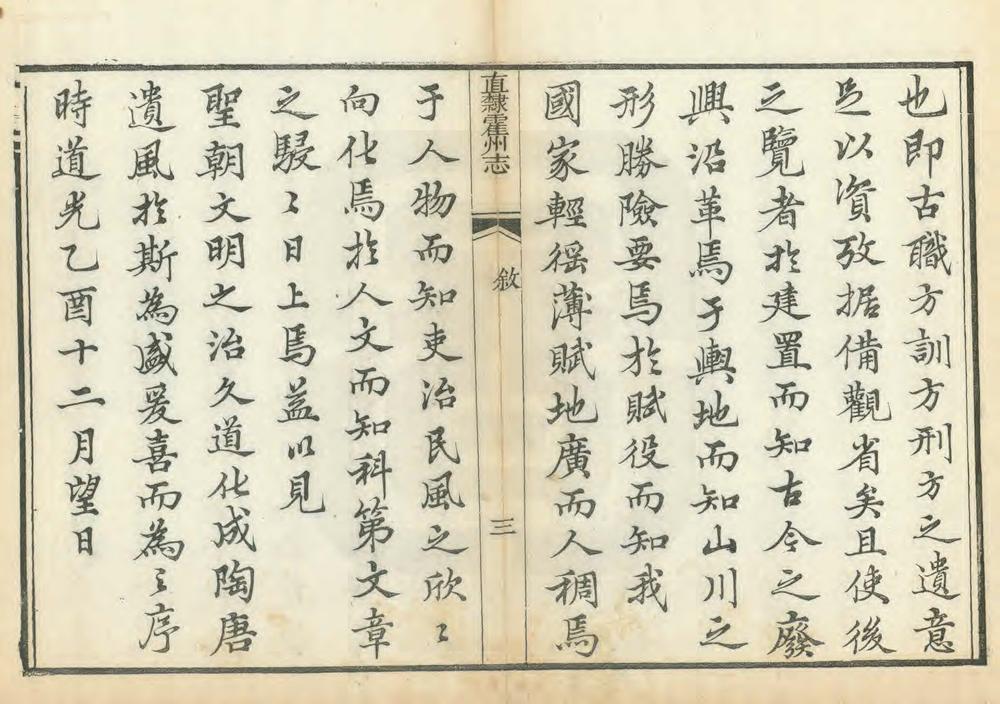 也即古職方訓方刑方之遺意
足以資攷据備觀省矣且使後
之覽者於建置而知古今之廢
興沿革焉于輿地而知山川之
形勝險要焉於賦役而知我
國家輕徭薄賦地廣而人稠焉
直隸霍州志
敘
三
于人物而知吏治民風之欣〻
向化焉於人文而知科第文章
之駸〻日上焉益以見
聖朝文明之治久道化成陶唐
遺風於斯為盛爰喜而為之序
時道光乙酉十二月望日